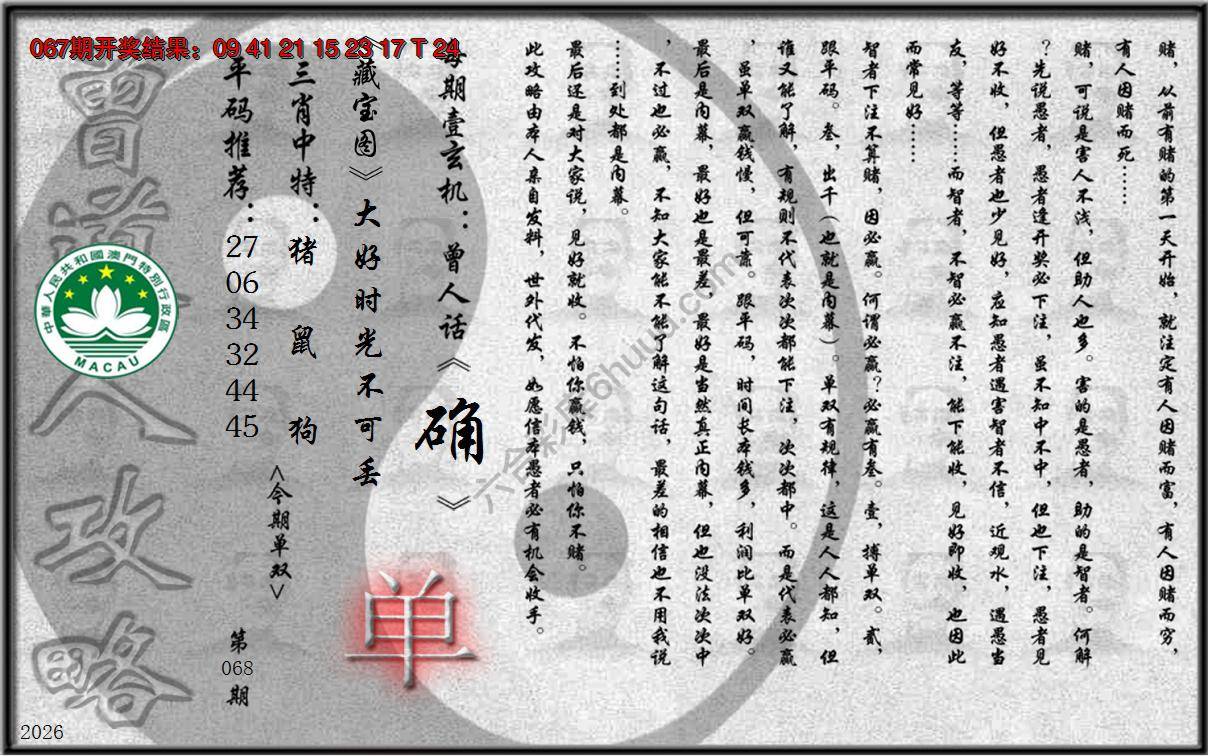 067期开奖结果：09 41 21 15 23 17 T 24
赌，从前有赌的第一天开始，就注定有人因赌而富，有人因赌而穷，
有人因赌而死……
赌，可说是害人不浅，但助人也多。害的是愚者，助的是智者。何解
？先说愚者，愚者逢开奖必下注，虽不知中不中，但也下注，愚者见
好不收，但愚者也少见好，应知愚者遇害智者不信，近观水，遇愚当
友，等等……而智者，不智必赢不注，能下能收，见好即收，也因此
而常见好……
智者下注不算赌，因必赢。何谓必赢？必赢有叁。壹，搏单双。贰，
跟平码。叁，出千（也就是内幕）。单双有规律，这是人人都知，但
谁又能了解，有规则不代表次次都能下注，次次都中。而是代表必赢
，虽单双赢钱慢，但可靠。跟平码，时间长本钱多，利润比单双好。
最后是内幕，最好也是最差，最好是当然真正内幕，但也没法次次中
，不过也必赢，不知大家能不能了解这句话，最差的相信也不用我说
……到处都是内幕。
最后还是对大家说，见好就收。不怕你赢钱，只怕你不赌。
此攻略由本人亲自发料，世外代发，如愿信本愚者必有机会收手。
每期壹玄机：曾人话《确》
《藏宝图》大好时光不可丢
三肖中特：猪 鼠 狗
<今期单双>
单
平码推荐：27 06 34 32 44 45
第068期
曾道人攻略
中華人民共和國澳門特別行政區
MACAU
六合彩库6huuu.com
2026